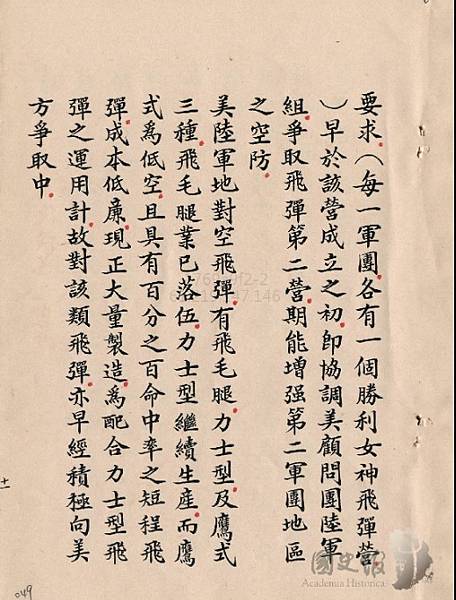 要求。（每一軍團。各有一個勝利女神飛彈營
）早於該營成立之初。即協調美顧問團陸軍
組爭取飛彈第二營。期能增强第二軍團地區
之空防。
美陸軍地對空飛彈。有飛毛腿。力士型。及鷹式
三種。飛毛腿業已落伍。力士型繼續生產。而鷹
式爲低空。且具有百分之百命中率之短程飛
彈。成本低廉。現正大量製造。爲配合力士型飛
彈之運用計。故對該類飛彈。亦早經積極向美
方爭取中。
十一
049
國史館
Academia Historica